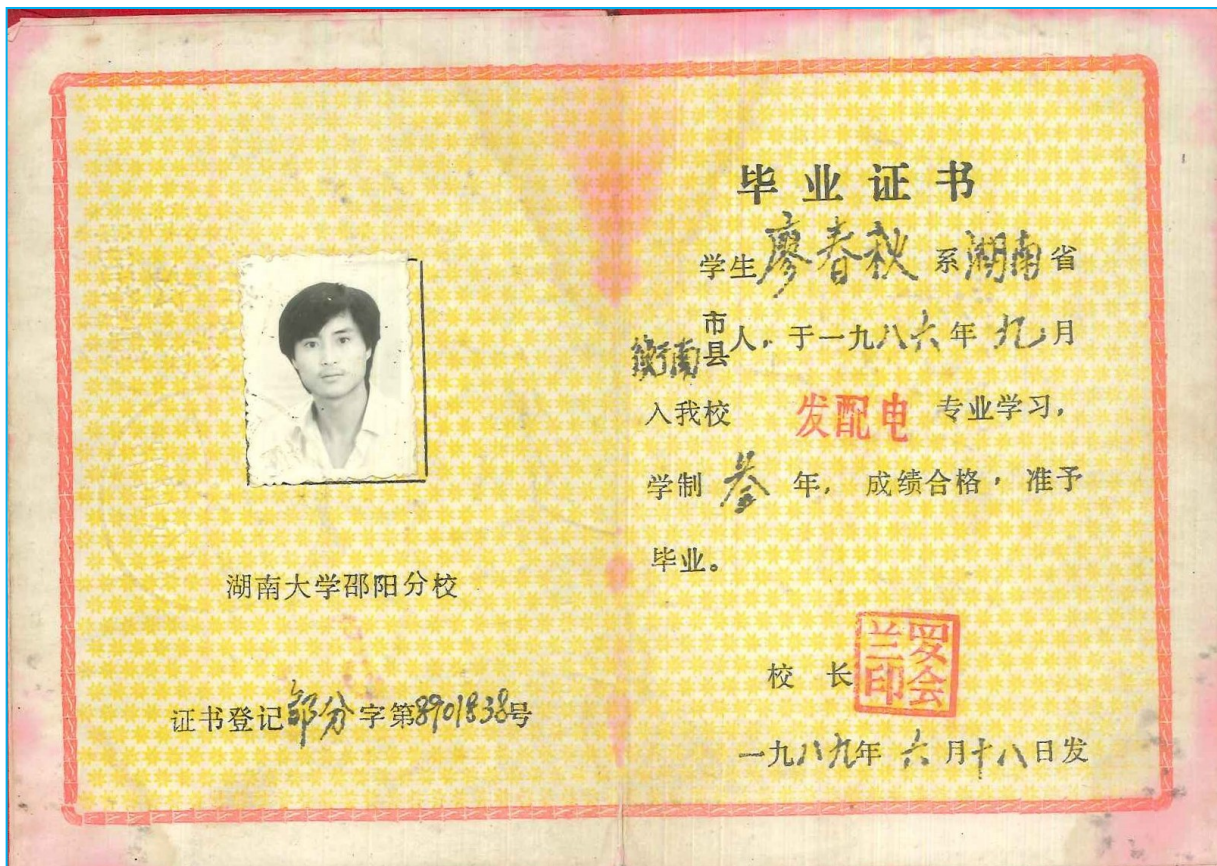 湖南大学邵阳分校
证书登记邵分字第8901838号
毕业证书
学生廖春秋系湖南省
衡南市县人，于一九八六年九月
入我校 发配电 专业学习，
学制 叁 年，成绩合格，准予
毕业。
校 长 罗会兰印
一九八九年六月十八日发